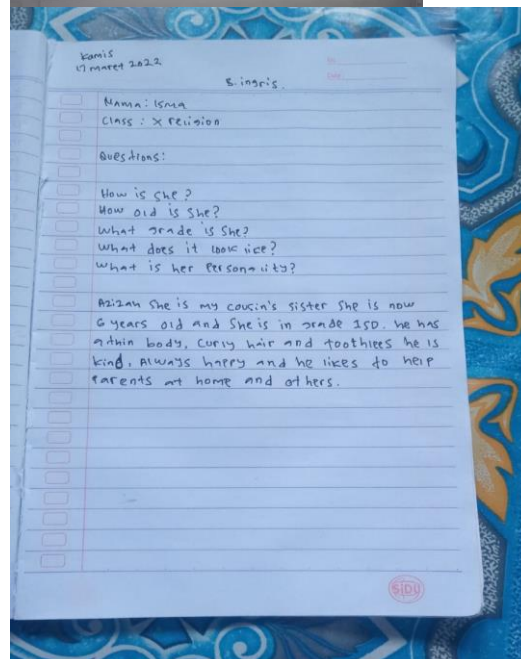 Kamis
17 maret 2022
No.
Date
B. ingris.
Nama : Isma
Class : X religion
Questions :
How is she ?
How old is she?
What grade is she?
What does it look lice?
What is her Personality?
Azizah She is my cousin's sister she is now
6 years old and she is in grade 1SD. he has
a thin body, curly hair and toothlees he is
kind, Always happy and he likes to help
Parents at home and others.
SIDU